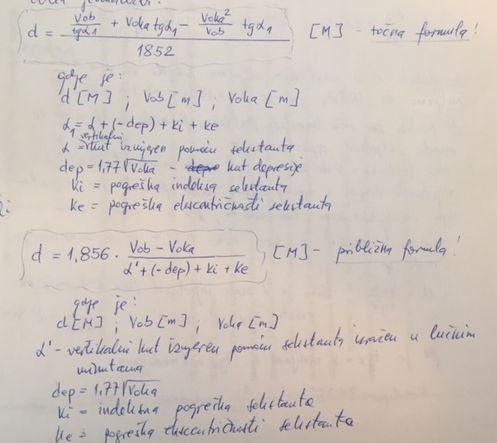 d = (Vob/tgα₁ + Voka tgα₁ - Voka²/Vob tgα₁) / 1852 [M] - točna formula!
gdje je:
d [M] ; Vob [m] ; Voka [m]
α₁ = α + (-dep) + ki + ke
α = vertikalni kut izmjeren pomoću sekstanta
dep = 1,77√Voka - kut depresije
ki = pogreška indeksa sekstanta
ke = pogreška ekscentričnosti sekstanta
d = 1,856 · (Vob - Voka) / (α' + (-dep) + ki + ke) , [M] - približna formula!
gdje je:
d [M] ; Vob [m] ; Voka [m]
α' - vertikalni kut izmjeren pomoću sekstanta izražen u lučnim
minutama
dep = 1,77√Voka
ki = indeksna pogreška sekstanta
ke = pogreška ekscentričnosti sekstanta